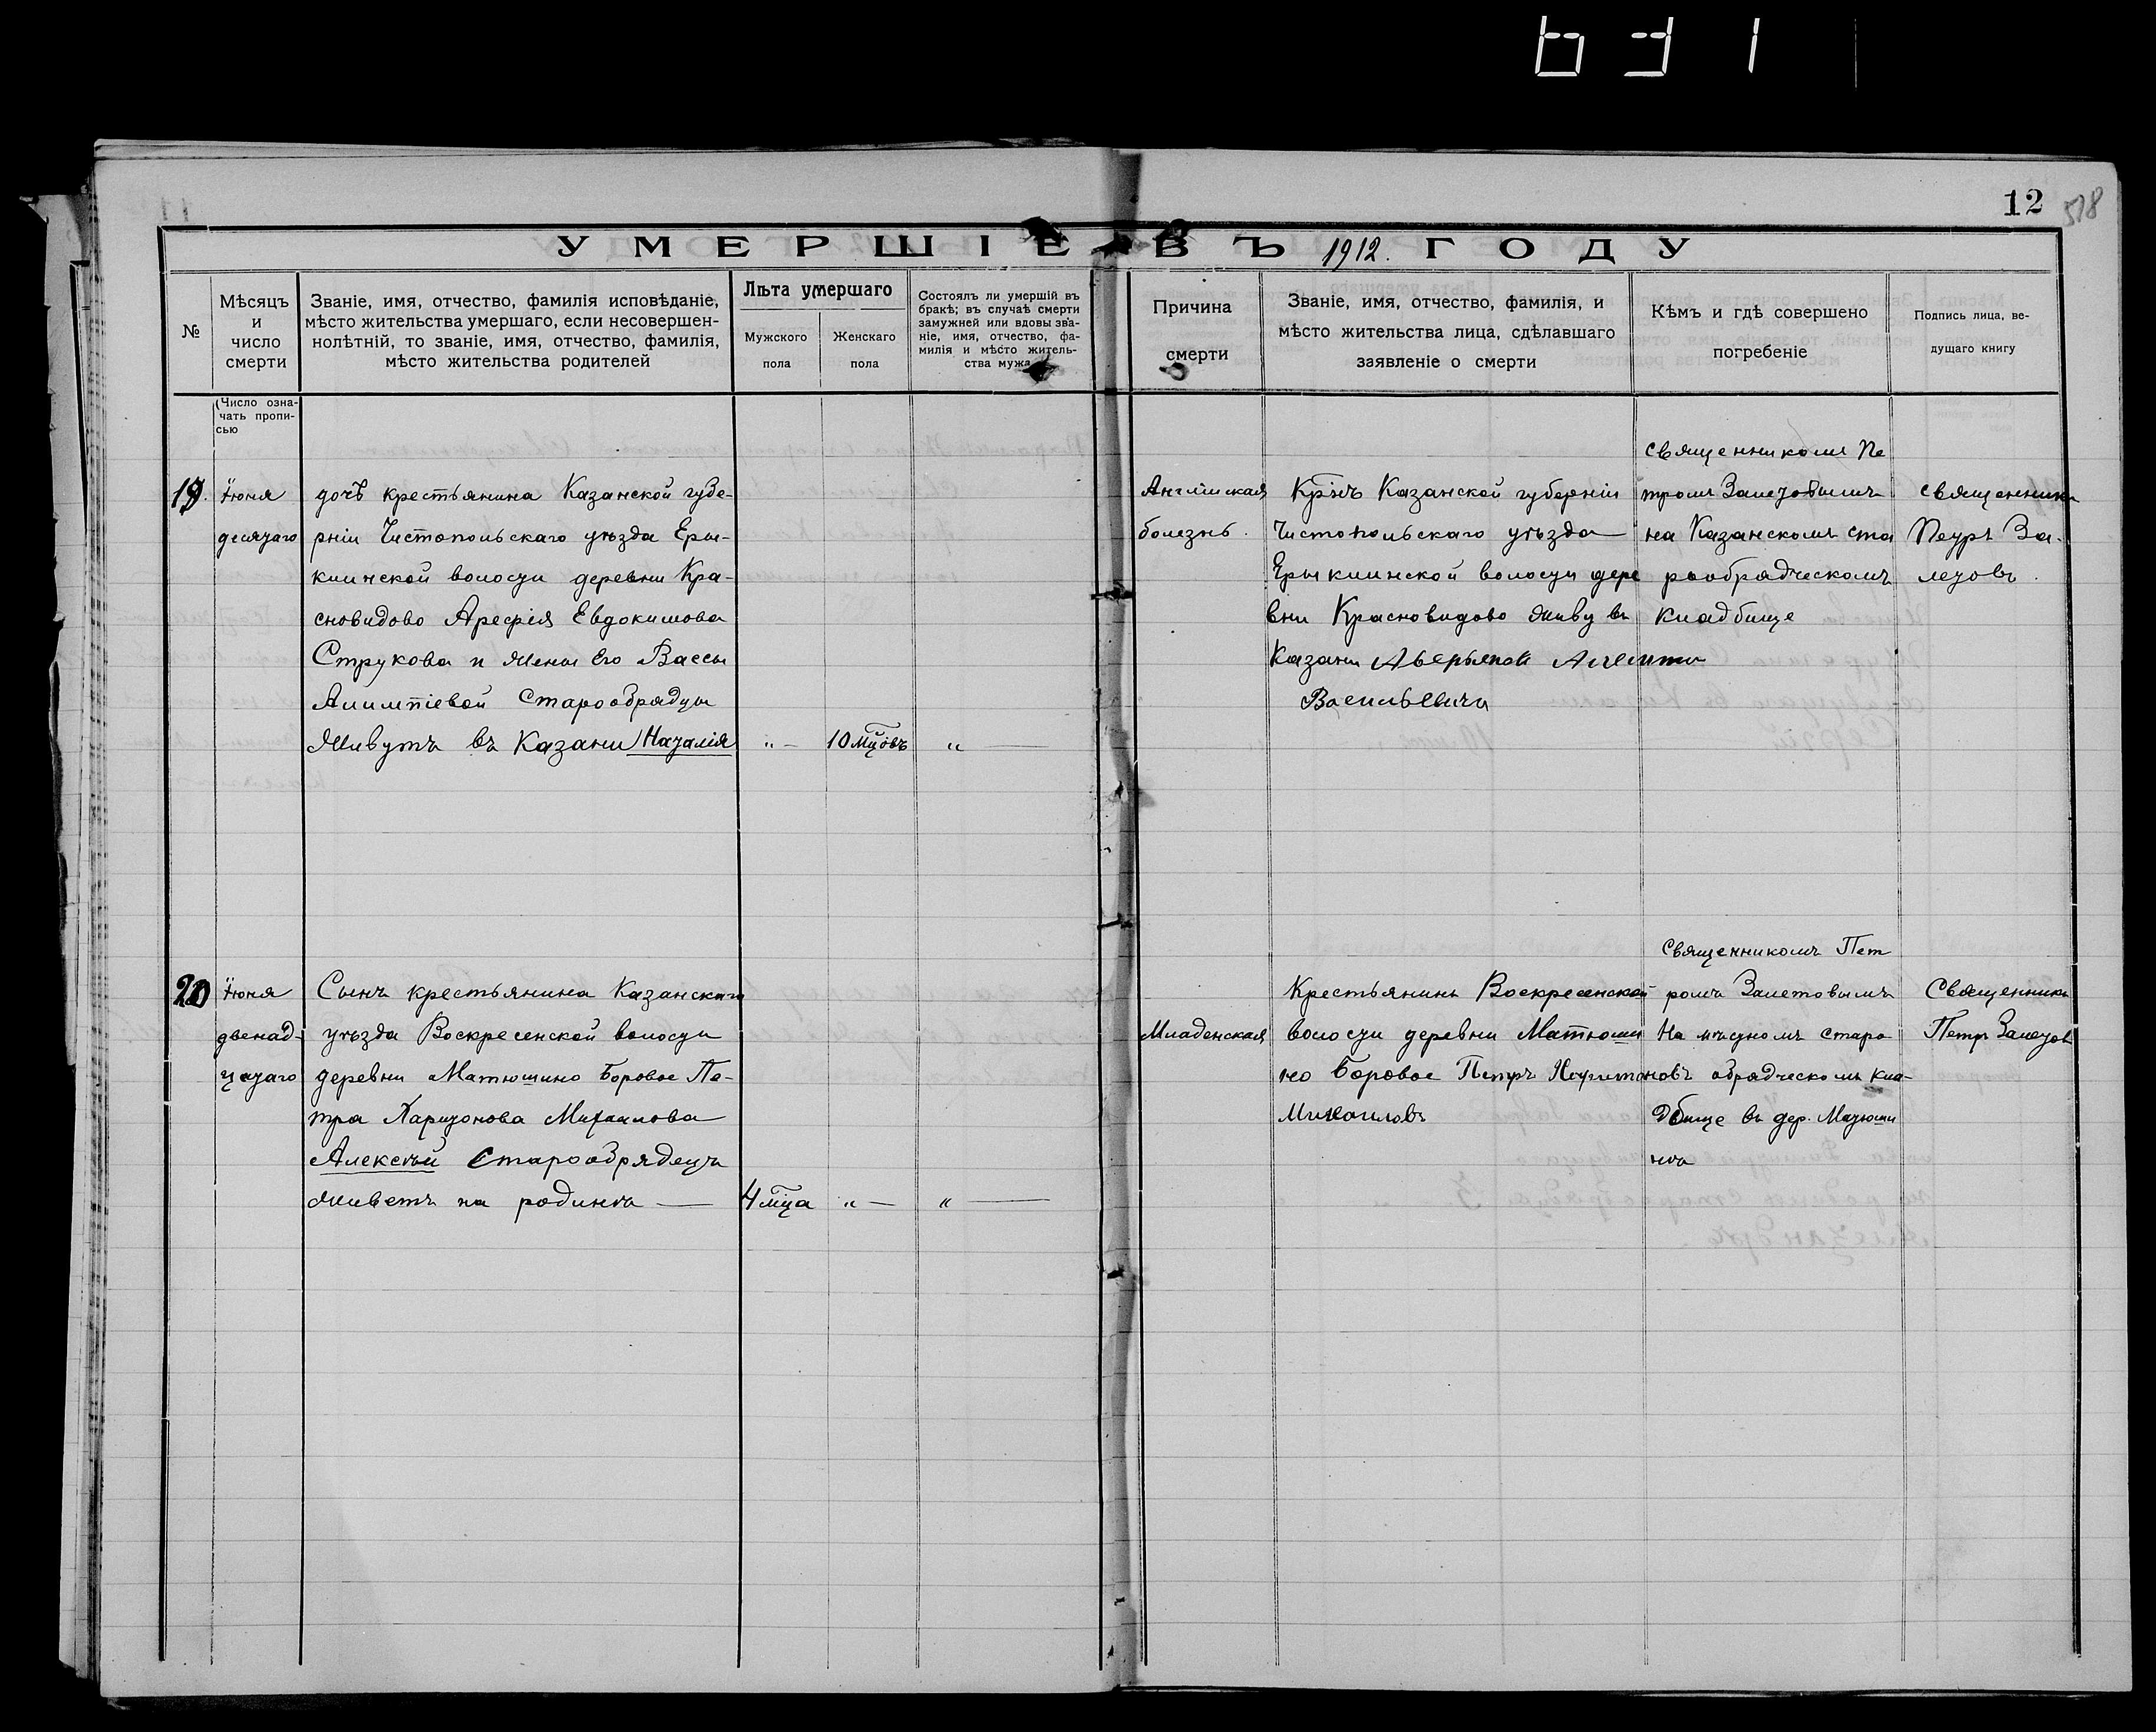 12
518
УМЕРШІЕ ВЪ 1912. ГОДУ
№
Мѣсяцъ
и
число
смерти
Званіе, имя, отчество, фамилія исповѣданіе,
мѣсто жительства умершаго, если несовершен-
нолѣтній, то званіе, имя, отчество, фамилія,
мѣсто жительства родителей
Лѣта умершаго
Мужского
пола
Женскаго
пола
Состоялъ ли умершій въ
бракѣ; въ случаѣ смерти
замужней или вдовы зва-
ніе, имя, отчество, фа-
милія и мѣсто житель-
ства мужа
Причина
смерти
Званіе, имя, отчество, фамилія, и
мѣсто жительства лица, сдѣлавшаго
заявленіе о смерти
Кѣмъ и гдѣ совершено
погребеніе
Подпись лица, ве-
дущаго книгу
(Число озна-
чать пропи-
сью
19.
Іюня
десятаго
дочь крестьянина Казанской губе-
рніи Чистопольскаго уѣзда Еры-
клинской волости деревни Кра-
сновидово Арефія Евдокимова
Струкова и жены его Вассы
Алимпіевой Старообрядцы
Живутъ въ Казани Наталія
" —
10 мцовъ
" —
Англійская
болезнь.
Кр̃нъ Казанской губерніи
Чистопольскаго уѣзда
Ерыклинской волости дере
вни Красновидово живу въ
Казани Аверьяной
Васильевичъ
Священникомъ Пе
тромъ Залетовымъ
на Казанскомъ ста
рообрядческомъ
кладбище
священникъ
Петръ За-
летовъ.
20
Іюня
двенад-
цатаго
Сынъ крестьянина Казанскаго
уѣзда Воскресенской волости
деревни Матюшино Боровое Пе-
тра Харитонова Михаилова
Алексѣй Старообрядецъ
Живетъ на родинѣ —
4 мца
" —
" —
Младенская
Крестьянинъ Воскресенской
волости деревни Матюши
но Боровое Петръ Харитоновъ
Михаиловъ
Священникомъ Пет
ромъ Залетовымъ
На мѣстномъ старо
обрядческомъ кла-
дбище въ дер. Матюши
нѣ
Священникъ
Петръ Залетов